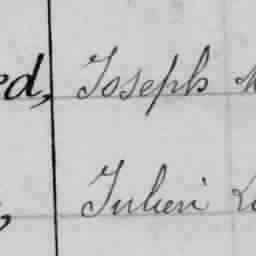 ed, Joseph
Julien